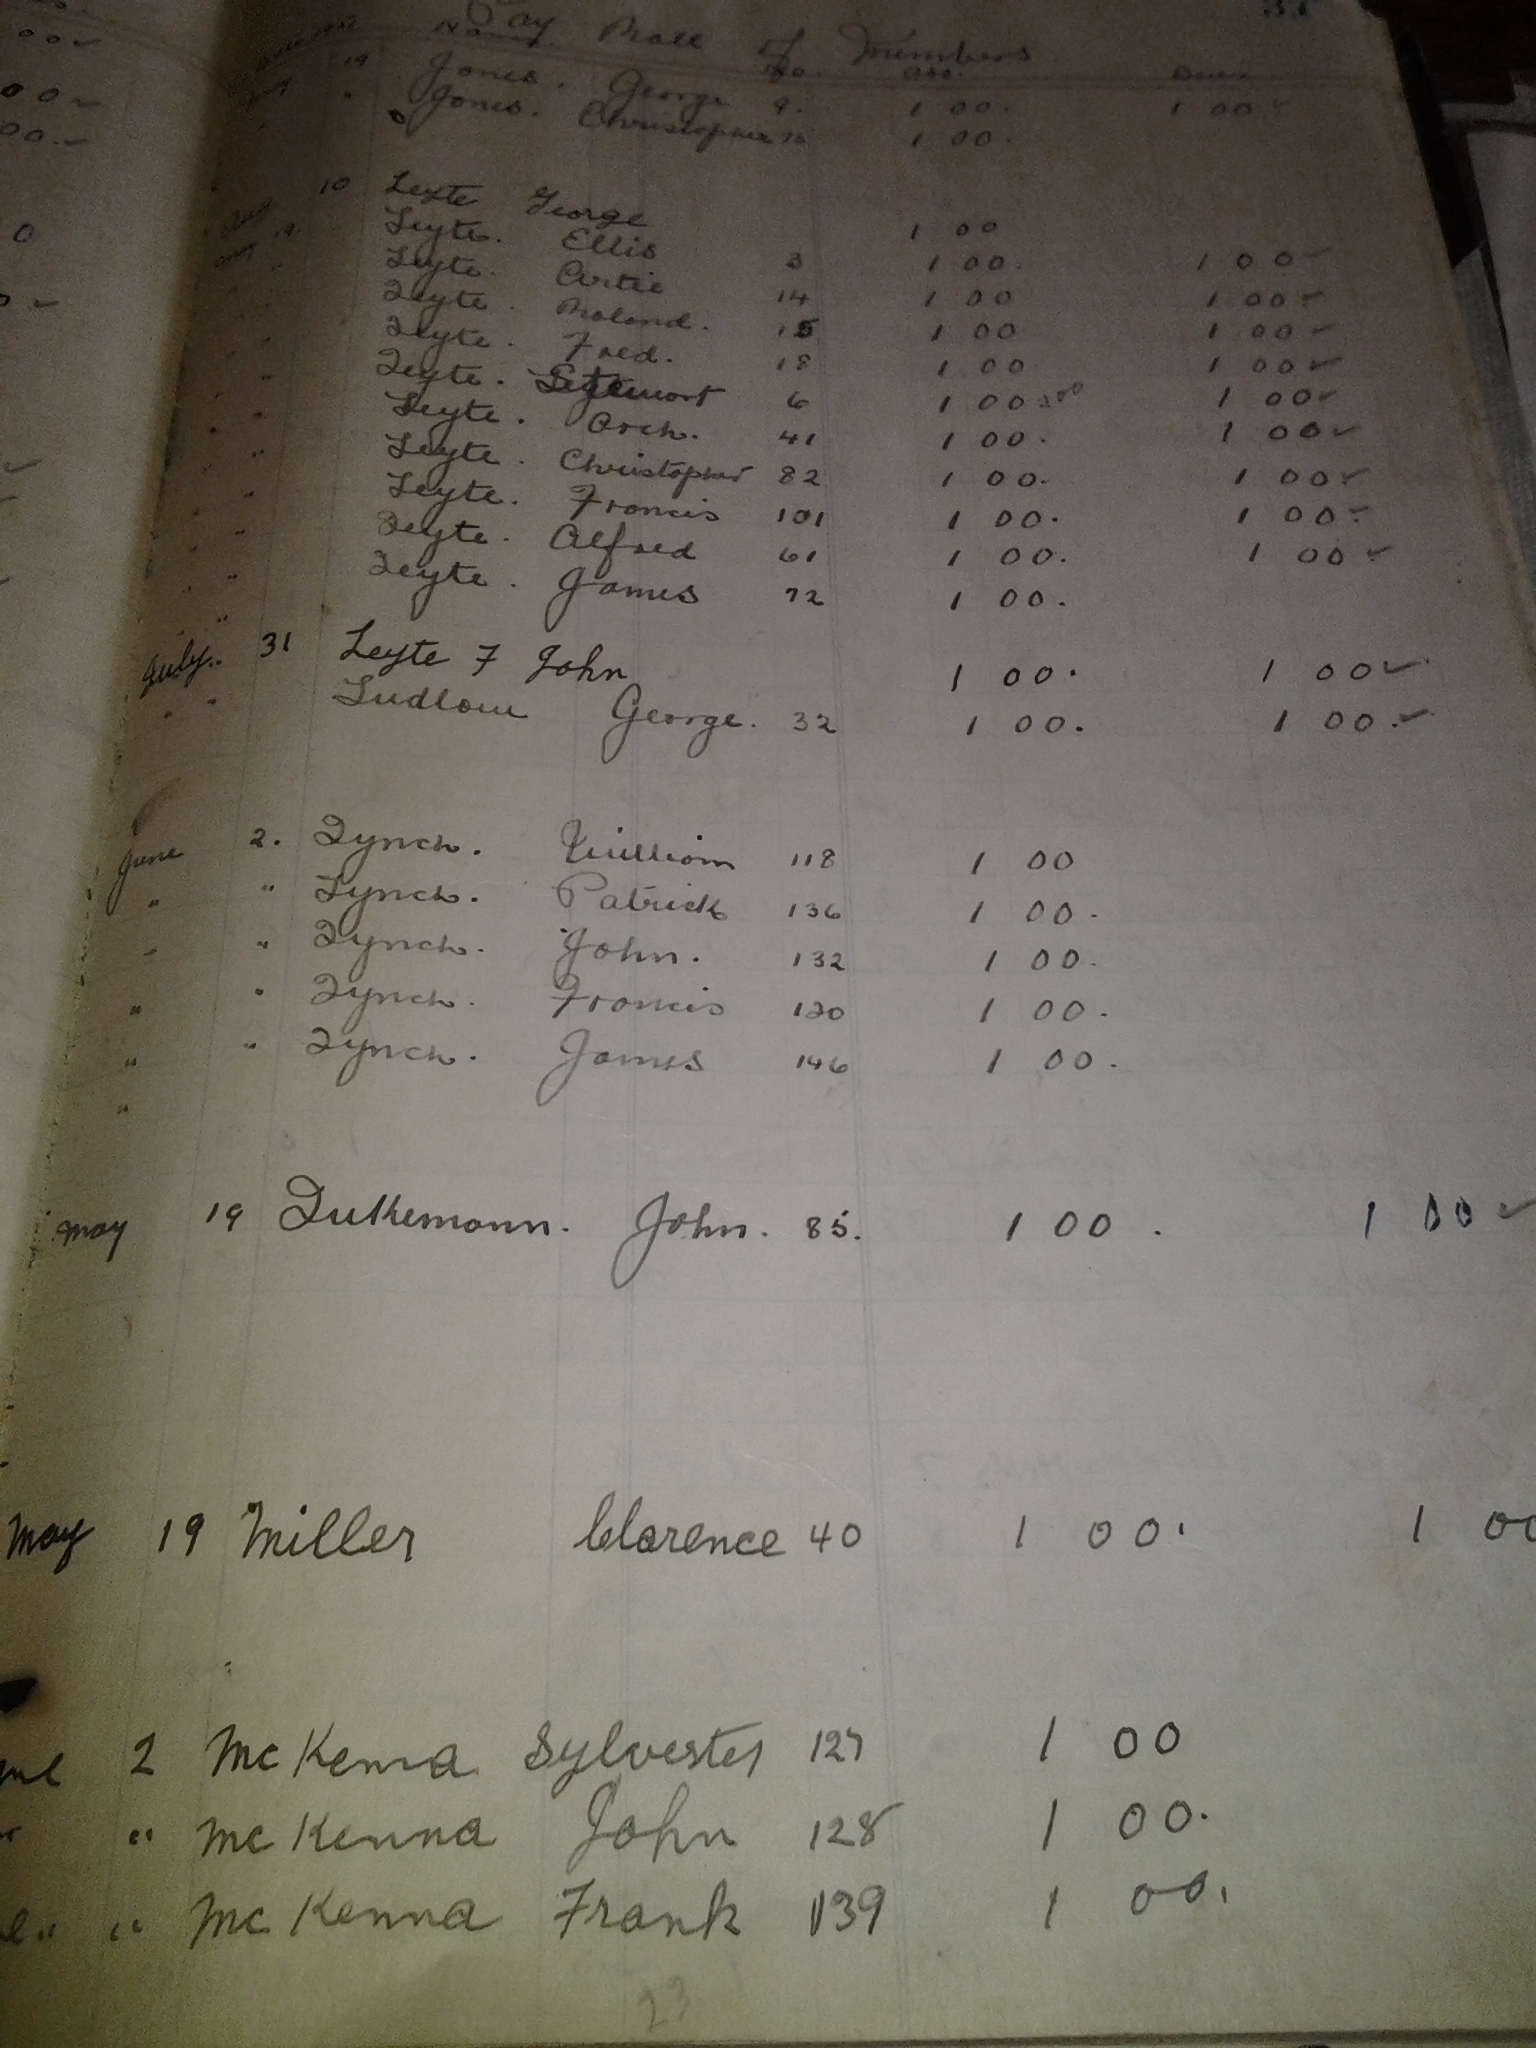 Pay Roll of Members
Names No. ass. Dues
19 Jones. George 9. 1 00. 1 00
" Jones. Christopher 1 00.
10 Leyte George 1 00
may 19. Leyte. Ellis 3 1 00. 1 00
" Leyte. Artie 14 1 00 1 00
Leyte. Roland. 15 1 00 1 00
Leyte. Fred. 18 1 00 1 00
" Leyte. 6 1 00 1 00
" Leyte. Arch. 41 1 00. 1 00
" " Leyte. Christopher 82 1 00. 1 00
" " Leyte. Francis 101 1 00. 1 00
" " Leyte. Alfred 61 1 00. 1 00
" " Leyte. James 72 1 00.
July.. 31 Leyte F John 1 00. 1 00
" " Ludlow George. 32 1 00. 1 00.
June 2. Lynch. William 118 1 00
" " Lynch. Patrick 136 1 00.
" " Lynch. John. 132 1 00.
" " Lynch. Francis 120 1 00.
" " Lynch. James 146 1 00.
"
may 19 Lutkemann. John. 85. 1 00. 1 00
May 19 Miller Clarence 40 1 00. 1 00
2 McKenna Sylvester 127 1 00
" McKenna John 128 1 00.
" " McKenna Frank 139 1 00.
23